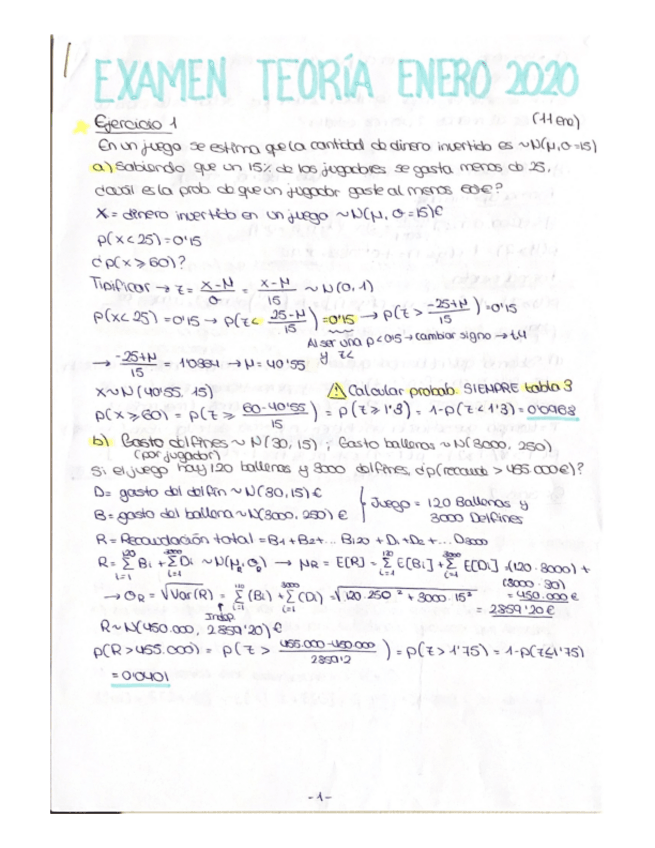 EXAMEN TEORÍA ENERO 2020
Ejercicio 1 (11 ene)
En un juego se estima que la cantidad de dinero invertido es ~N(μ, σ=15)
a) Sabiendo que un 15% de los jugadores se gasta menos de 25,
¿cuál es la prob de que un jugador gaste al menos 60€?
X = dinero invertido en un juego ~N(μ, σ=15)€
p(x<25)=0'15
¿p(x≥60)?
Tipificar → z = x-μ/σ = x-μ/15 ~ N(0,1)
p(x<25)=0'15 → p(z< 25-μ/15) = 0'15 → p(z > -25+μ/15) = 0'15
Al ser una p<0'15 → cambiar signo →
y z<
→ -25+μ/15 = 1'0364 → μ = 40'55
X~N(40'55, 15) ⚠ Calcular probab. SIEMPRE tabla 3
p(x≥60) = p(z≥ 60-40'55/15) = p(z≥1'3) = 1-p(z<1'3) = 0'0968
b) Gasto delfines ~ N(30,15) ; Gasto ballenas ~ N(3000, 250)
(por jugador)
Si el juego hay 120 ballenas y 3000 delfines, ¿p(recauda > 455.000€)?
D = gasto del delfín ~ N(30,15)€
B = gasto del ballena ~ N(3000, 250)€
Juego = 120 Ballenas y
3000 Delfines
R = Recaudación total = B1+B2+... B120 + D1+D2+... D3000
R = 120Σi=1 Bi + 3000Σi=1 Di ~ N(μ, σ) → μR = E[R] = 120Σi=1 E[Bi] + 3000Σi=1 E[Di] = (120·3000) + (3000·30) = 450.000€
→ σR = √Var(R) = 120Σi=1 (Bi) + 3000Σi=1 (Di) = √120·250² + 3000·15² = 2859'20€
Indep
R~N(450.000, 2859'20)€
p(R>455.000) = p(z > 455.000-450.000/2859'2) = p(z>1'75) = 1-p(z≤1'75)
= 0'0401
-1-